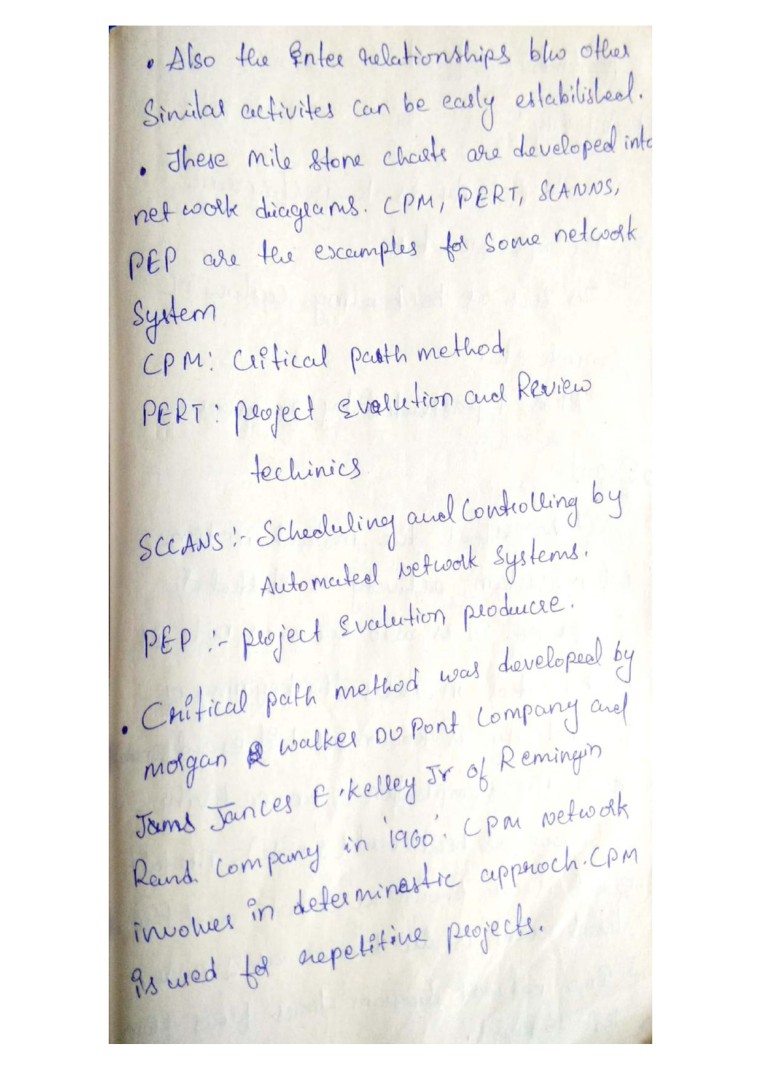 • Also the Enter relationships b/w other
Similar activites can be easly estabilished.
• These mile stone charts are developed into
net work diagrams. CPM, PERT, SCANNS,
PEP are the examples for some network
System
CPM: Critical parth method
PERT: project Evalution and Review
techinics
SCCANS:- Scheduling and Controlling by
Automated Network Systems.
PEP :- project Evalution producre.
• Critical path method was developed by
morgan R walker Du Pont Company and
Jams Jances E. Kelley Jr of Remingin
Rand. Company in '1960'. CPM network
involves in determinestic approch. CPM
is used for repetitive projects.